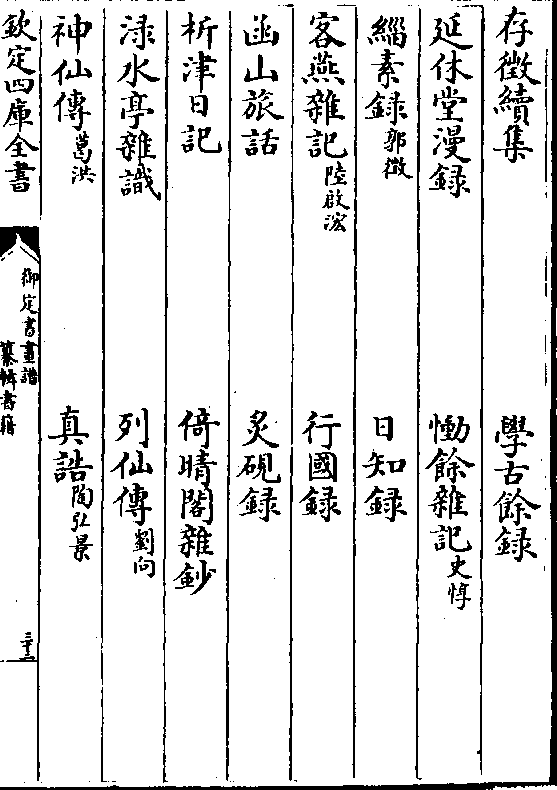 存徵續集 學古餘録
延休堂漫録 慟餘雜記史惇
緇素録郭徵 日知録
客燕雜記陸啟浤 行國録
函山旅話 炙硯録
析津日記 倚晴閣雜鈔
渌水亭雜識 列仙傳劉向
神仙傳葛洪 真誥陶弘景
欽定四庫全書
御定書畫譜
纂輯書籍
三十三